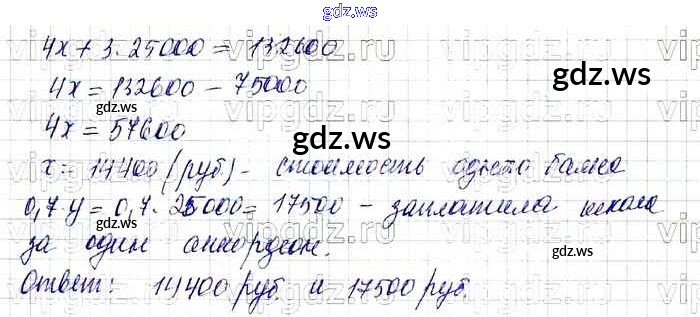 gdz.ws
4x + 3·25000 = 132600
4x = 132600 - 75000
gdz.ws
gdz.ws
4x = 57600
gdz.ws
x = 14400 (руб) - стоимость одного баяна
gdz.ws
0,7·y = 0,7·25000 = 17500 - заплатила школа
за один аккордеон.
gdz.ws
gdz.ws
Ответ: 14400 руб. и 17500 руб.
gdz.ws